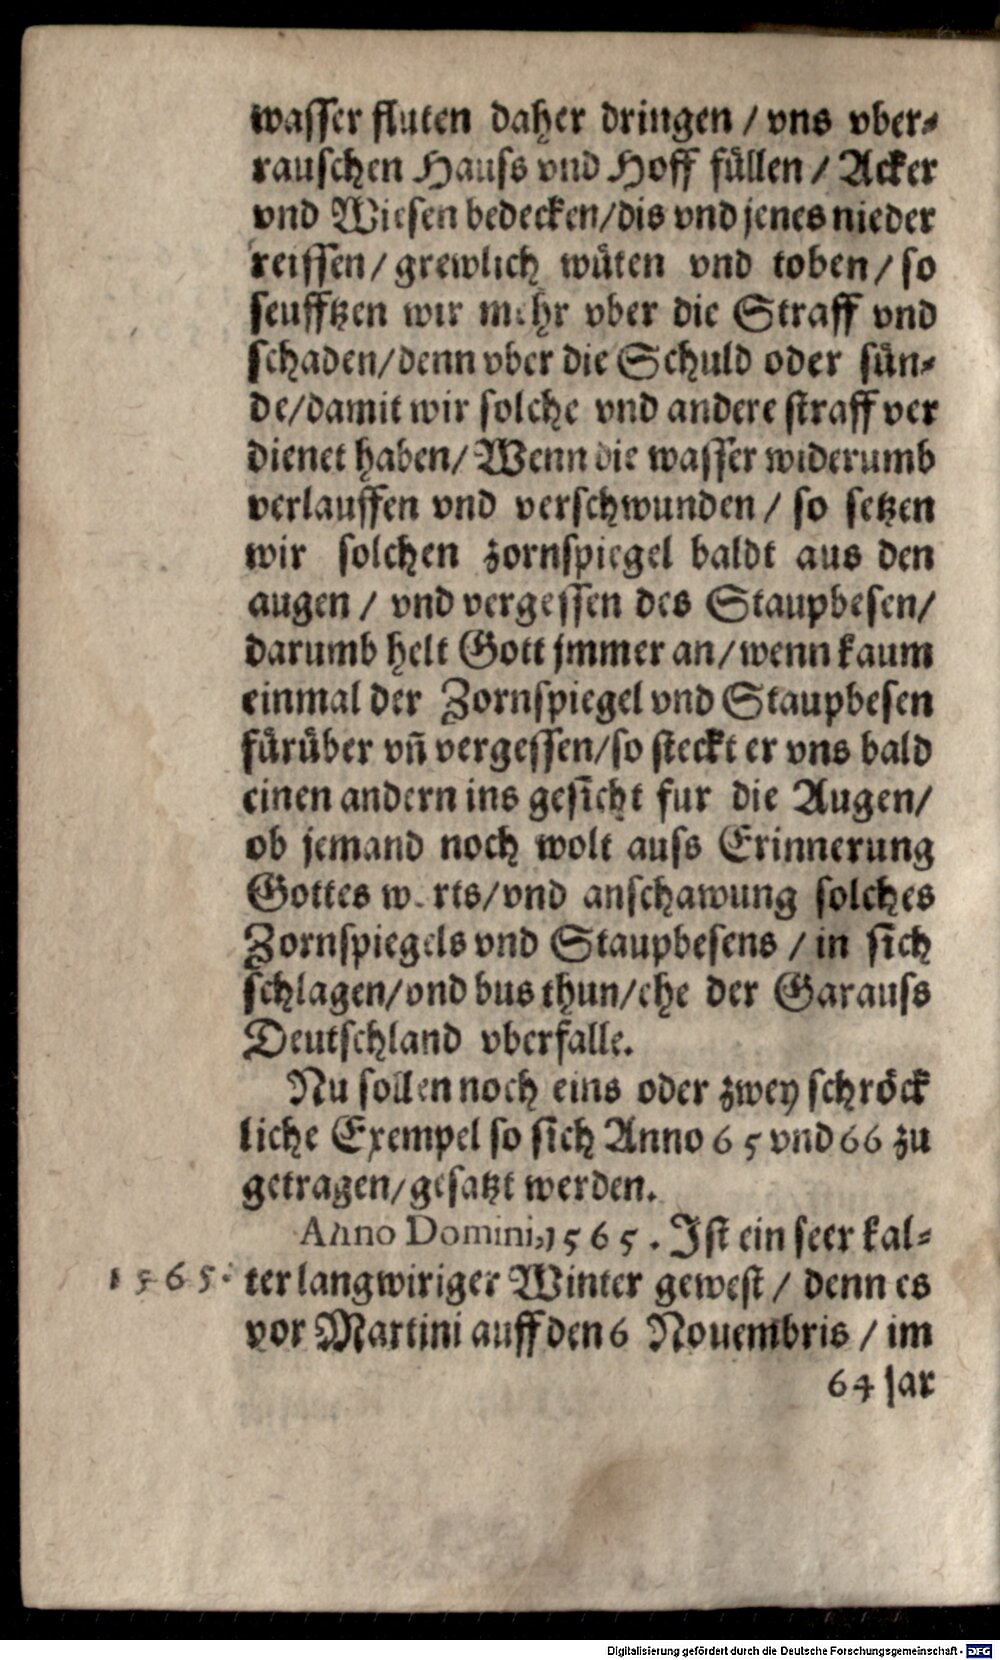 wasser fluten daher dringen / vns vber⸗
rauschen Hauss vnd Hoff füllen / Acker
vnd Wiesen bedecken/dis vnd jenes nieder
reissen/ grewlich wüten vnd toben/ so
seufftzen wir mehr vber die Straff vnd
schaden/denn vber die Schuld oder sün⸗
de/damit wir solche vnd andere straff ver
dienet haben/ Wenn die wasser widerumb
verlauffen vnd verschwunden/ so setzen
wir solchen zornspiegel baldt aus den
augen / vnd vergessen des Staupbesen/
darumb helt Gott jmmer an/wenn kaum
einmal der Zornspiegel vnd Staupbesen
fürüber vñ vergessen/so steckt er vns bald
einen andern ins gesicht fur die Augen/
ob jemand noch wolt auss Erinnerung
Gottes w rts/vnd anschawung solches
Zornspiegels vnd Staupbesens / in sich
schlagen/vnd bus thun/ehe der Garauss
Deutschland vberfalle.
Nu sollen noch eins oder zwey schröck
liche Exempel so sich Anno 65 vnd 66 zu
getragen/gesatzt werden.
Anno Domini, 1565. Ist ein seer kal⸗
1565. ter langwiriger Winter gewest / denn es
vor Martini auff den 6 Nouembris / im
64 jar
Digitalisierung gefördert durch die Deutsche Forschungsgemeinschaft - DFG